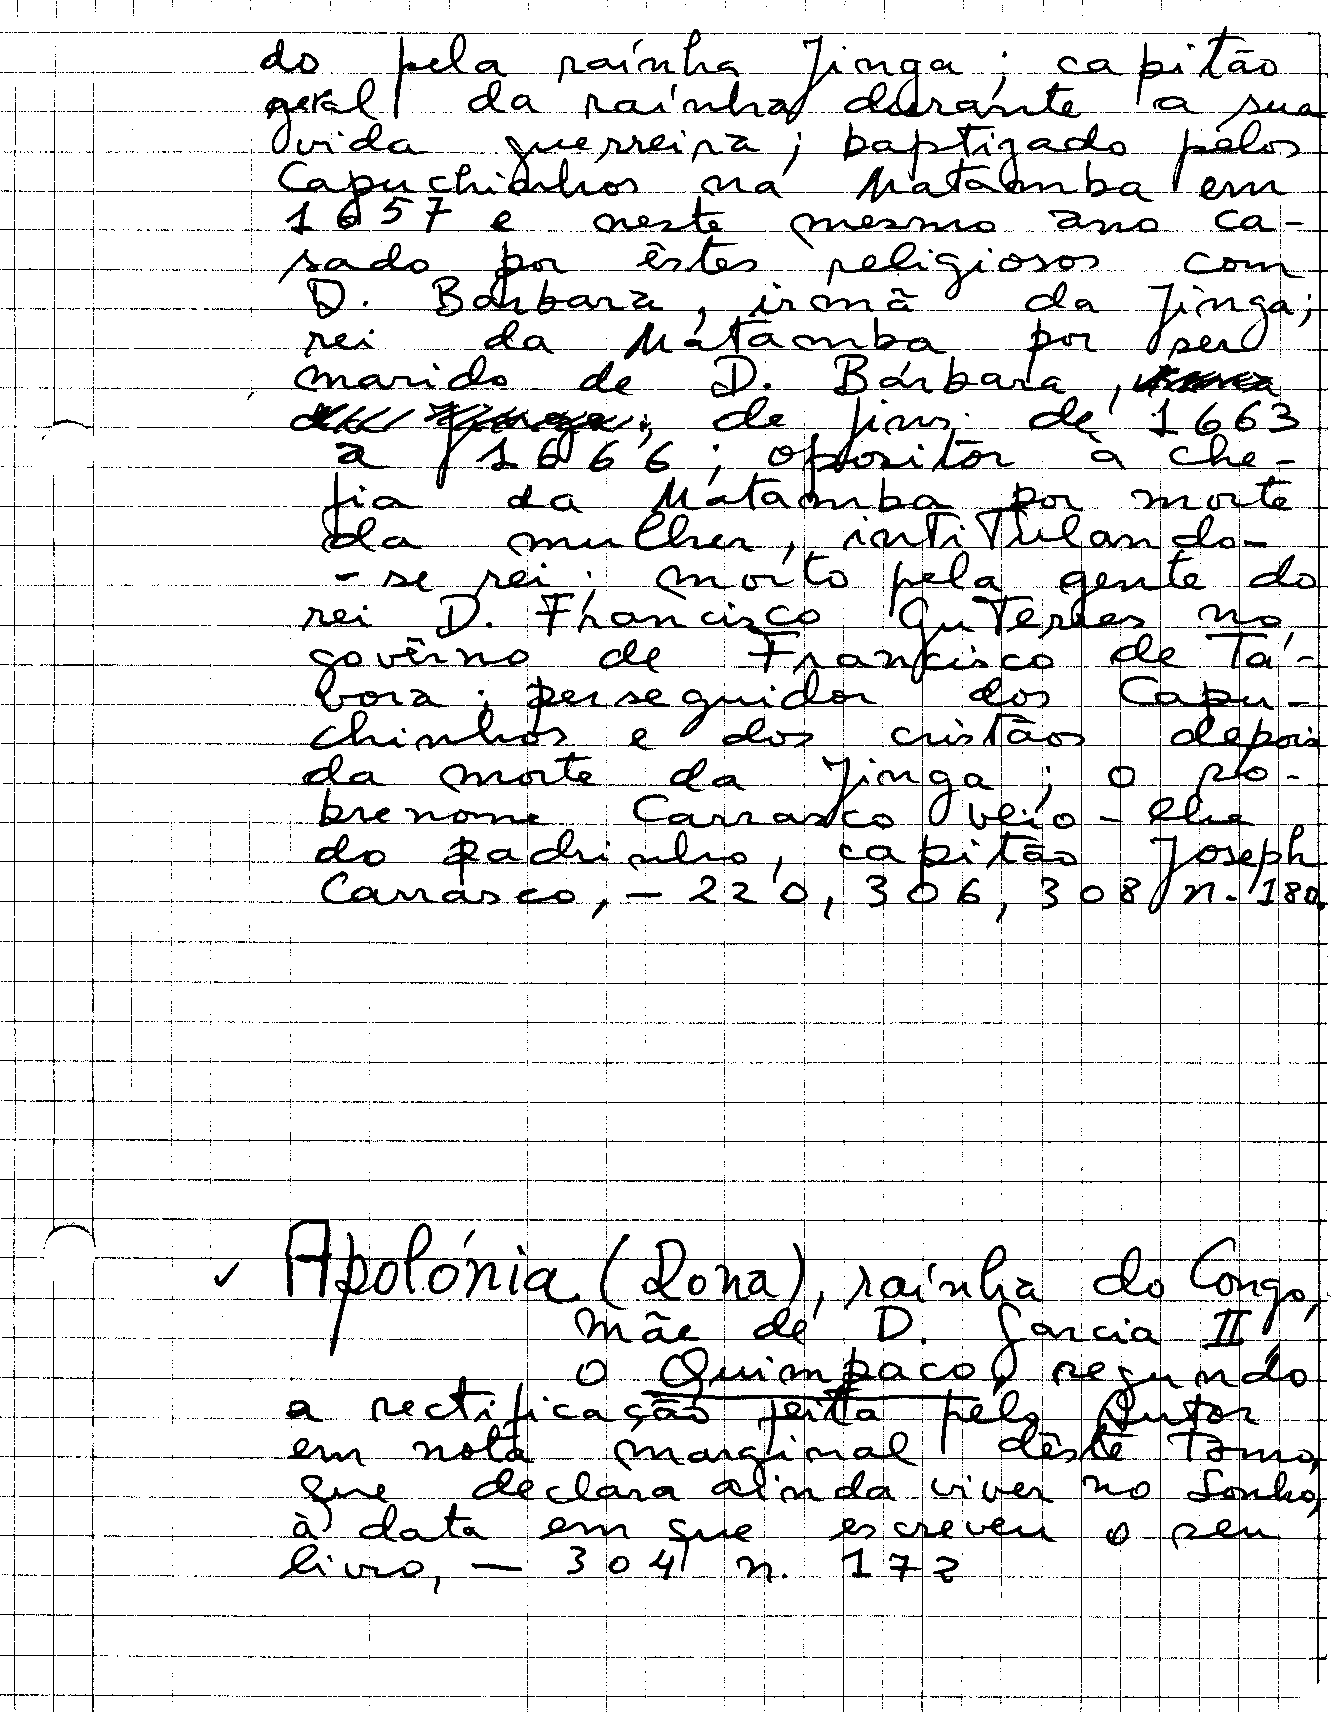 do pela raínha Jinga; capitão
geral da raínha durante a sua
vida guerreira; baptizado pelos
Capuchinhos na Matamba em
1657 e neste mesmo ano ca-
sado por êstes religiosos com
D. Bárbara, irmã da Jinga;
rei da Matamba por ser
marido de D. Bárbara,
de fins de 1663
a 1666; opositor à che-
fia da Matamba por morte
da mulher, intitulando-
-se rei; morto pela gente do
rei D. Francisco Guterres no
govêrno de Francisco de Tá-
vora; perseguidor dos Capu-
chinhos e dos cristãos depois
da morte da Jinga; o so-
brenome Carrasco veio-lhe
do padrinho, capitão Joseph
Carrasco, – 220, 306, 308 n. 180.
✓ Apolónia (Dona), raínha do Congo,
mãe de D. Garcia II,
o Quimpaco, segundo
a rectificação feita pelo Autor
em nota marginal dêste Tomo,
que declara ainda viver no Sonho,
à data em que escreveu o seu
livro, – 304 n. 172